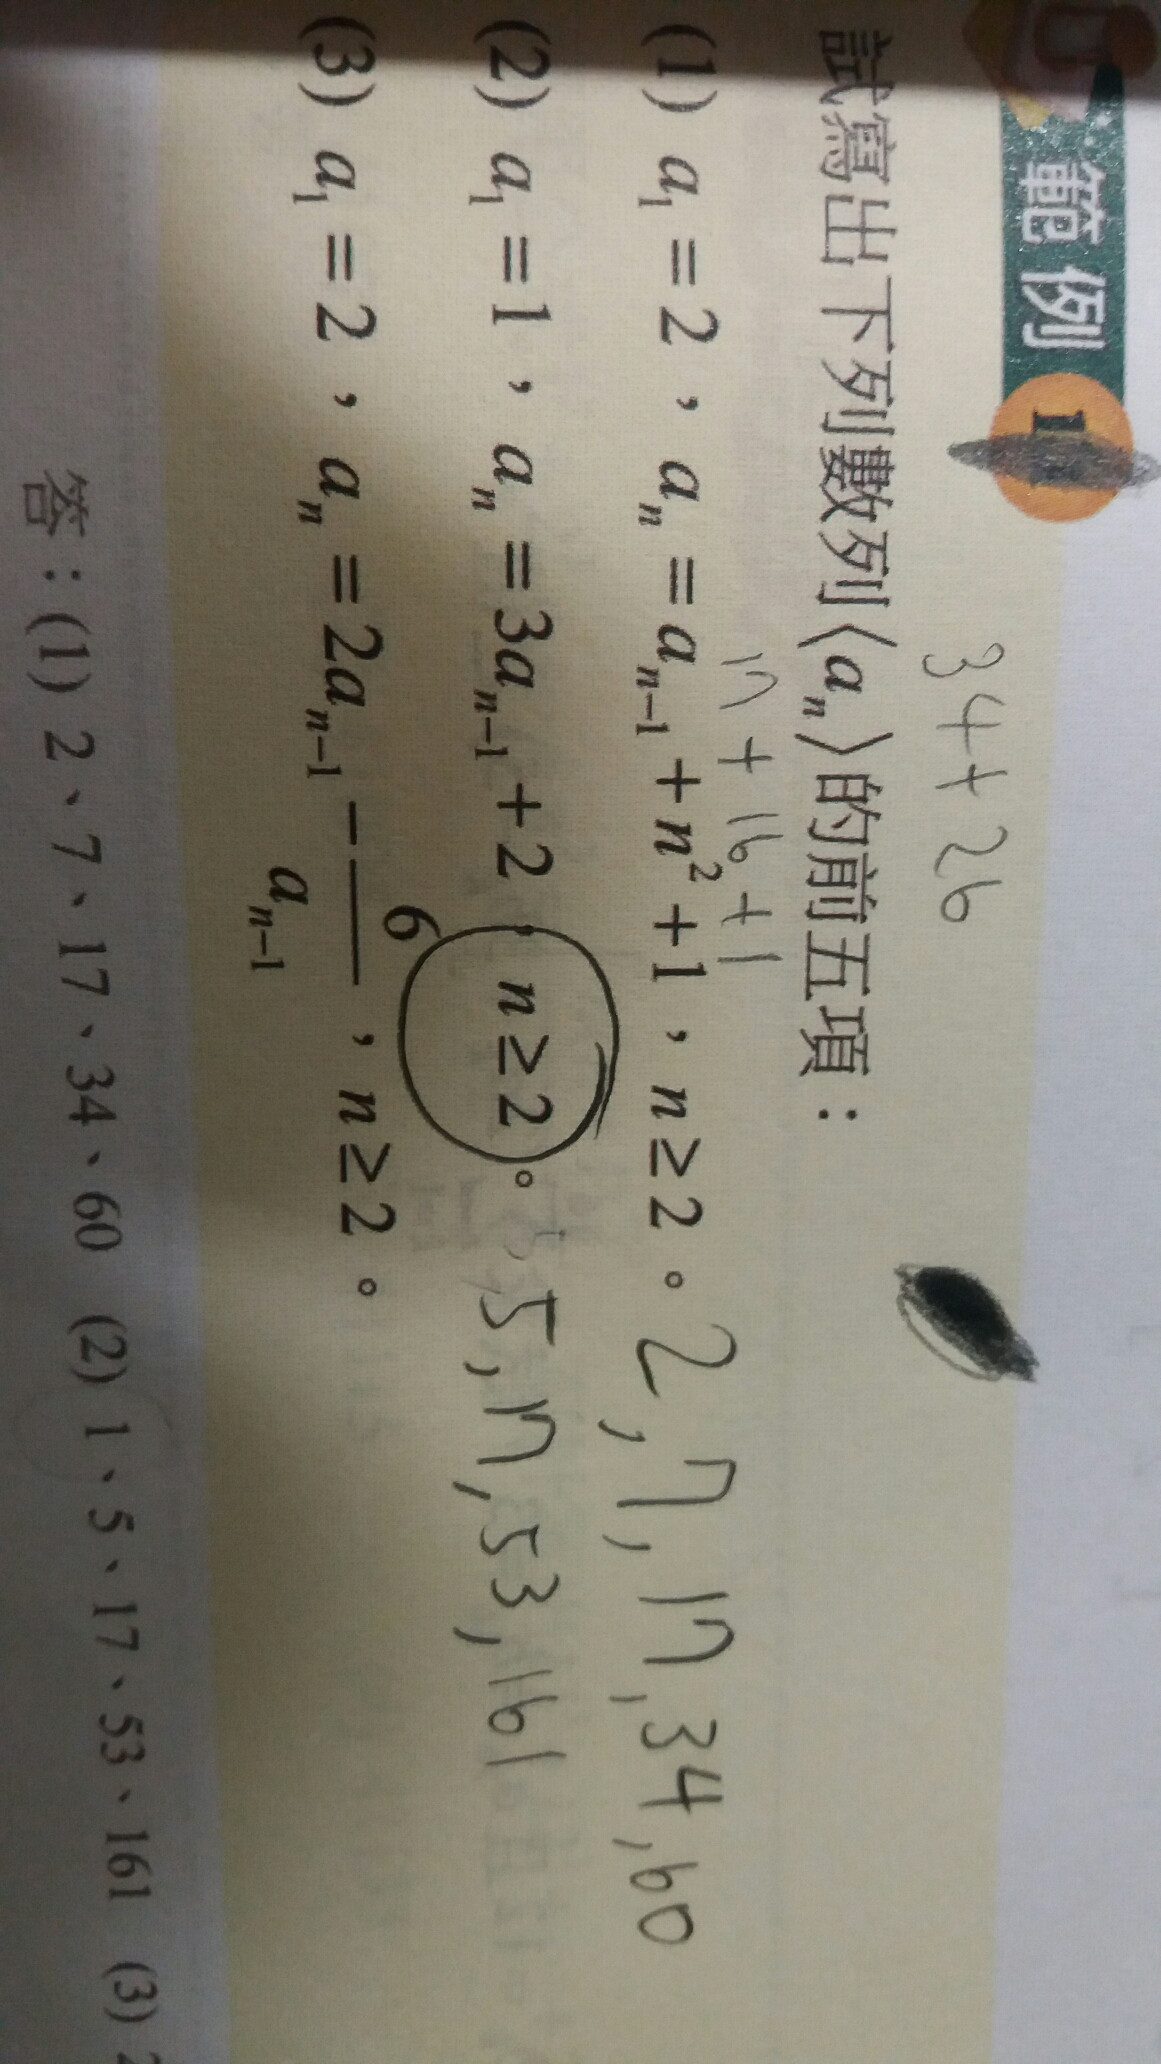 範例 1
34+26
試寫出下列數列⟨aₙ⟩的前五項：
17+16+1
(1) a₁=2，aₙ=aₙ₋₁+n²+1，n≥2。 2,7,17,34,60
(2) a₁=1，aₙ=3aₙ₋₁+2，n≥2。 5,17,53,161
(3) a₁=2，aₙ=2aₙ₋₁−6/aₙ₋₁，n≥2。
答：(1) 2、7、17、34、60 (2) 1、5、17、53、161 (3)